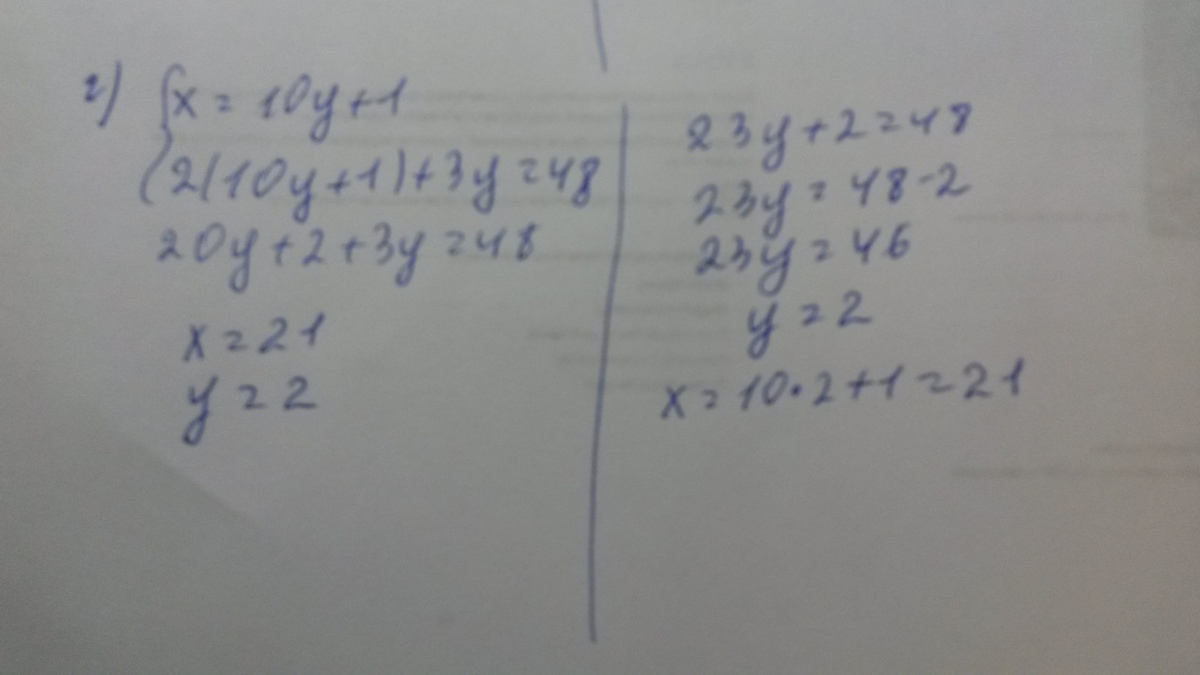 г) {x = 10y+1
{2(10y+1)+3y=48
20y+2+3y=48
x=21
y=2
23y+2=48
23y=48-2
23y=46
y=2
x=10·2+1=21